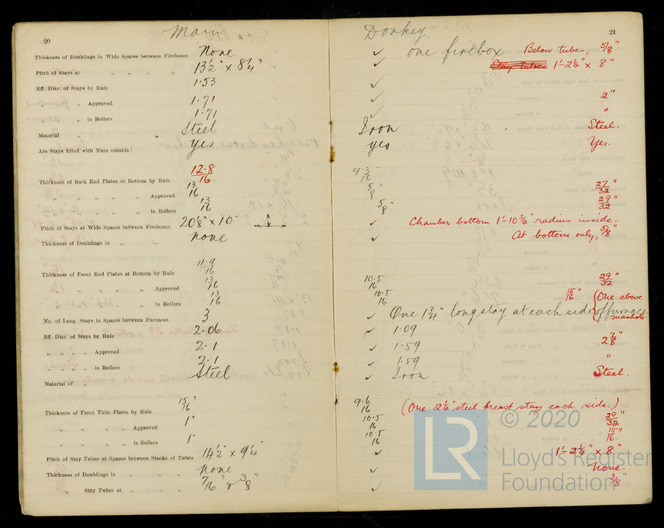 20
Main
Thickness of Doublings in Wide Spaces between Fireboxes None
Pitch of Stays at " " " " 13½" × 8¼"
Eff. Diar. of Stays by Rule 1.53
" " Approved 1.71
" " in Boilers 1.71
Material " Steel
Are Stays fitted with Nuts outside? Yes
Thickness of Back End Plates at Bottom by Rule 12.8/16
" " " " Approved 13/16
" " " " in Boilers 13/16
Pitch of Stays at Wide Spaces between Fireboxes 20⅛" × 10"
Thickness of Doublings in " " None
Thickness of Front End Plates at Bottom by Rule 11.9/16
" " " " Approved 13/16
" " " " in Boilers 13/16
No. of Long. Stays in Spaces between Furnaces 3
Eff. Diar. of Stays by Rule 2.06
" " " Approved 2.1
" " " in Boilers 2.1
Material of Steel
Thickness of Front Tube Plates by Rule 15/16"
" " " Approved 1"
" " " in Boilers 1"
Pitch of Stay Tubes at Spaces between Stacks of Tubes 14½" × 9¼"
Thickness of Doublings in " " None
Stay Tubes at " " 7/16" & 3/8"
Donkey
21
✓ one firebox Below tubes, 5/8"
✓ 1'-2½" × 8"
✓
✓ 2"
✓ "
Iron Steel.
yes Yes.
9.3/16
5/8" 27"/32
5/8" 29"/32
✓ Chamber bottom 1'-10¾ radius inside.
✓ At bottom only, 5/8"
10.5/16 29"/32
10.5/16 15"/16 (One above
✓ One 1¾" long stay at each side of furnace manhole
✓ 1.09
✓ 1.59 2⅞"
✓ 1.59 "
✓ Iron Steel.
9.6/16 (One 2¼" steel breast stay each side)
10.5/16 29"/32
10.5/16 15"/16
✓ 1'-2½" × 8"
✓ None.
✓ 3/8"
© 2020
LR
Lloyd's Register
Foundation